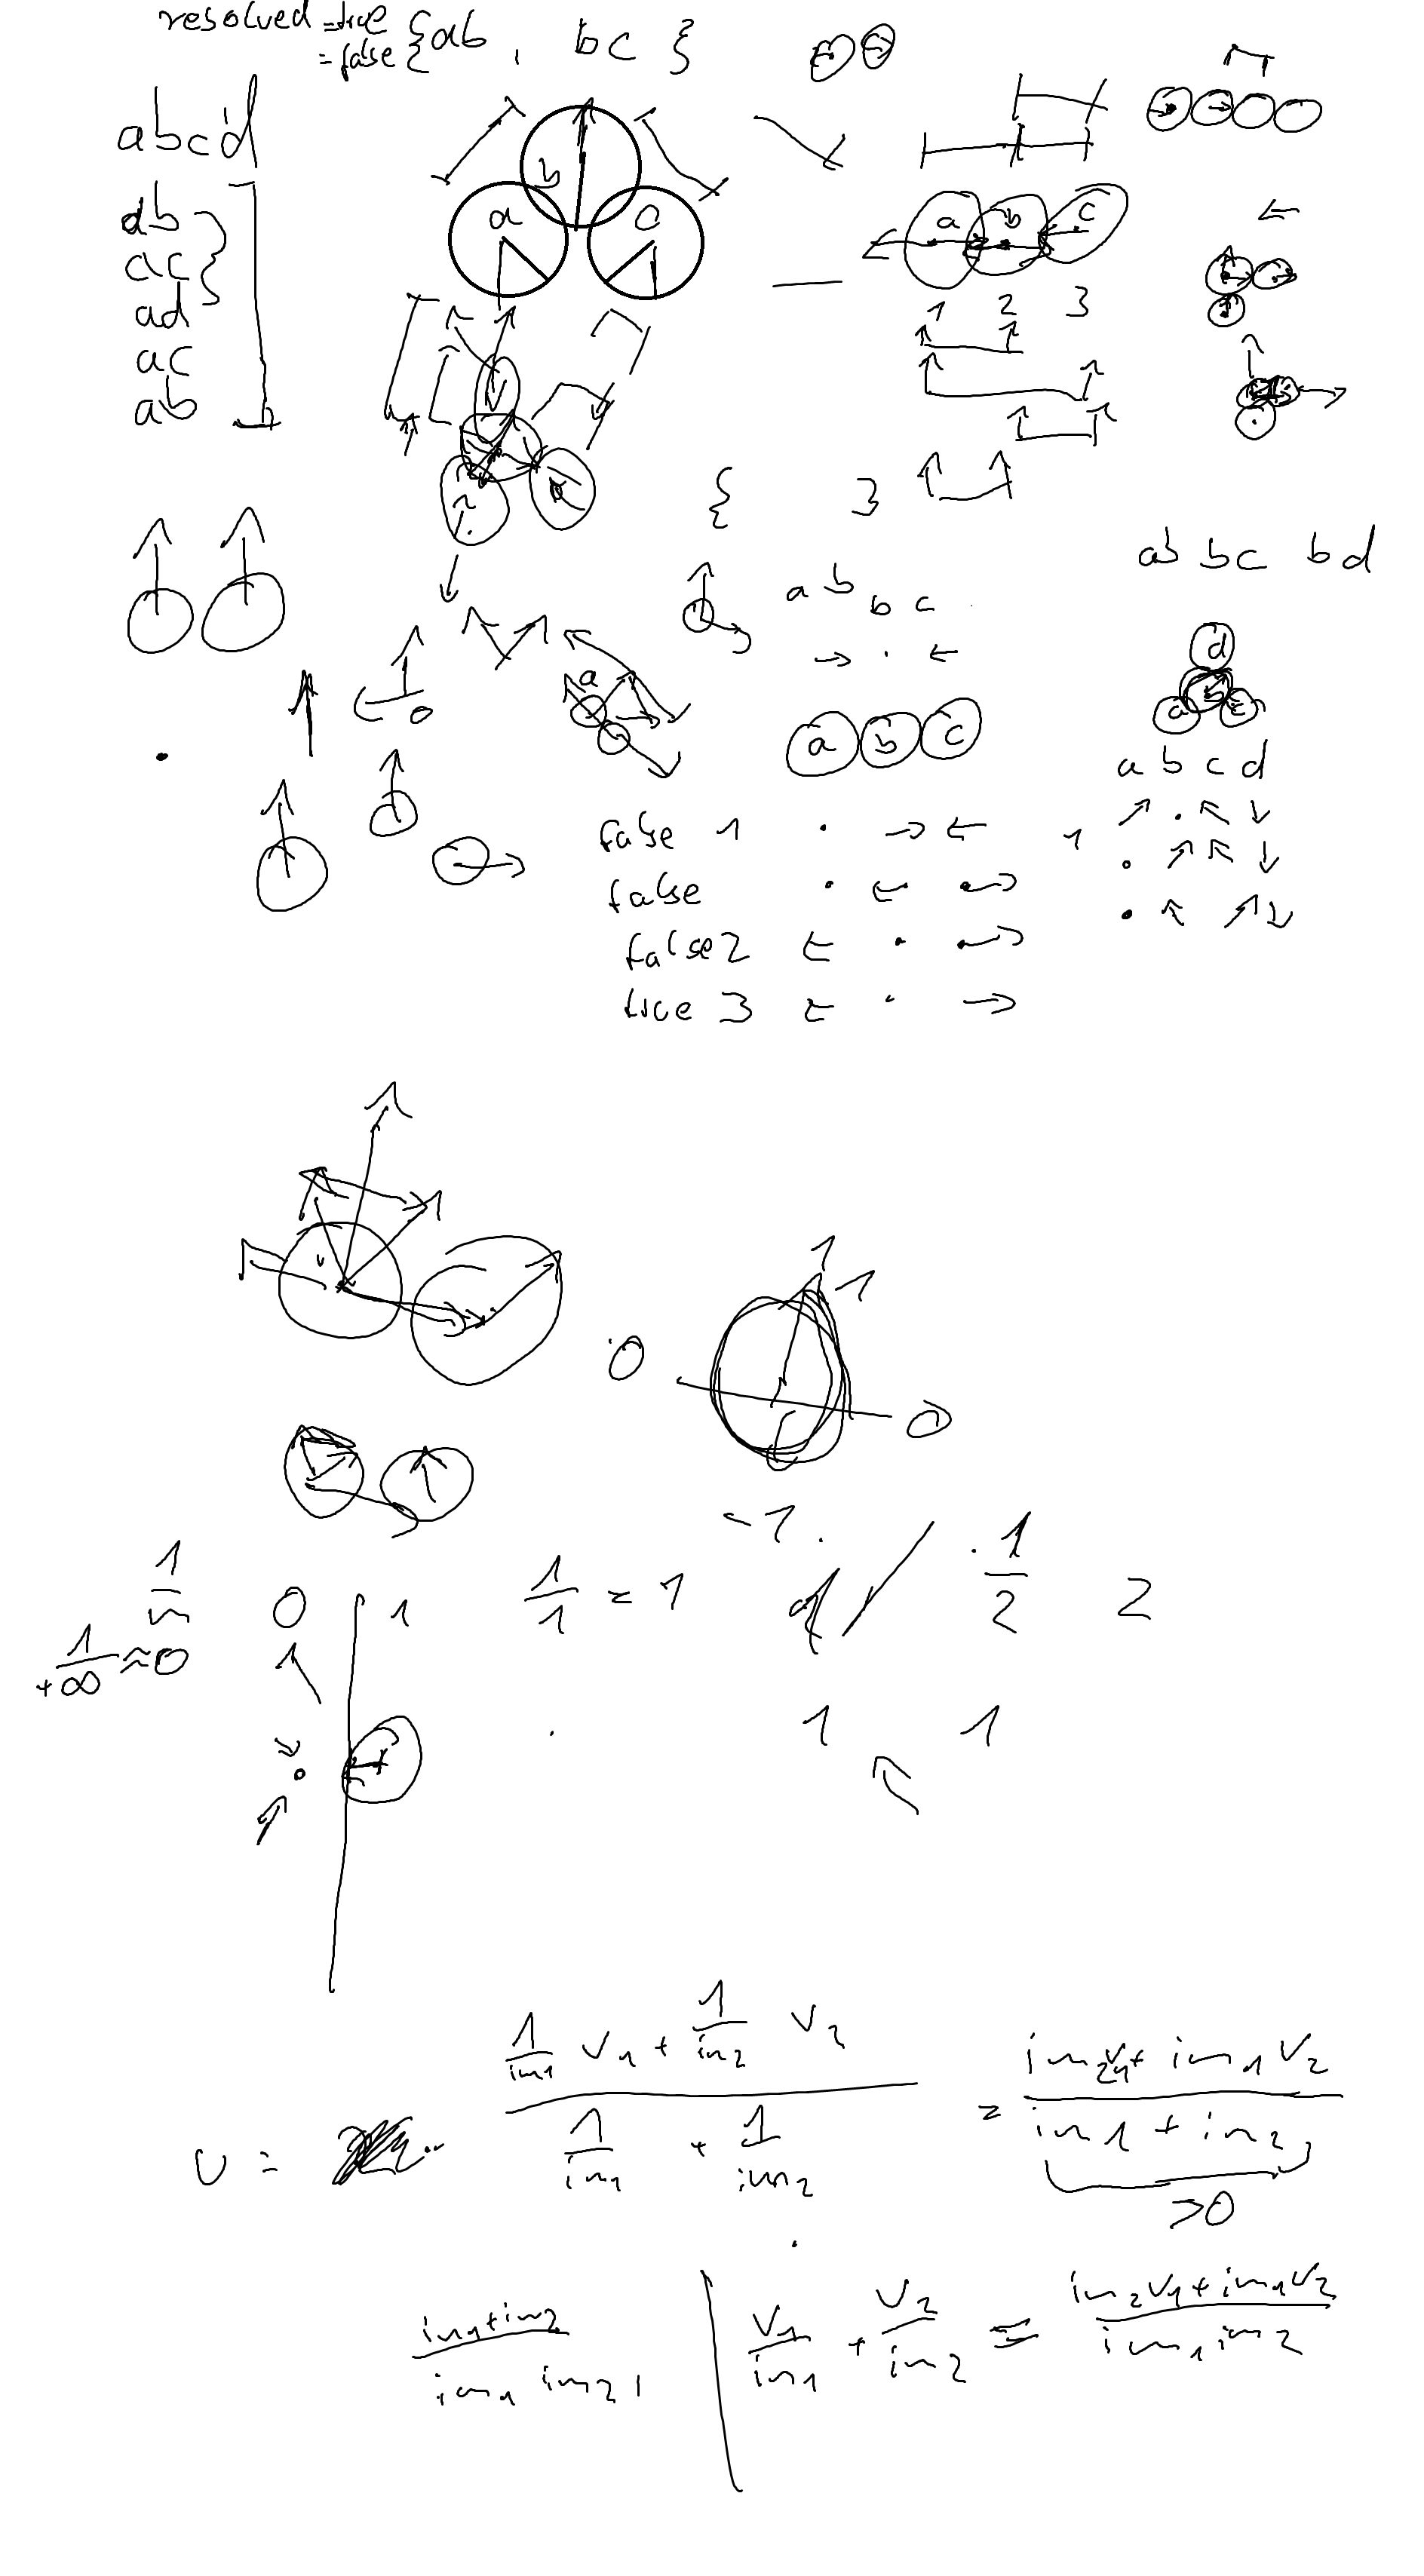 resolved =true
=false {ab , bc }
abcd
ab
ac
ad
ac
ab
b
a c
a b c
1 2 3
{ }
ab bc bd
a b
b c
→ · ←
a
a b c
d
a c
a b c d
false 1 · → ←
false · ← →
false 2 ← · →
true 3 ← · →
1 ↗ · ↖ ↓
· ↗ ↖ ↓
· ↖ ↗ ↓
1
0 0
-1
1/m 0 1
1/+∞ ≈ 0
1/1 = 1
1/2 2
1 1
v = (1/im1 v1 + 1/im2 v2) / (1/im1 + 1/im2) = (im2v1 + im1v2) / (im1 + im2)
>0
(im1+im2) / (im1 im2) | v1/im1 + v2/im2 = (im2v1+im1v2) / (im1 im2)